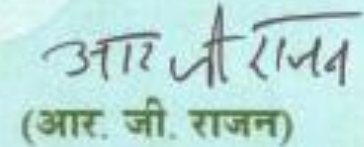 आर जी राजन
(आर. जी. राजन)